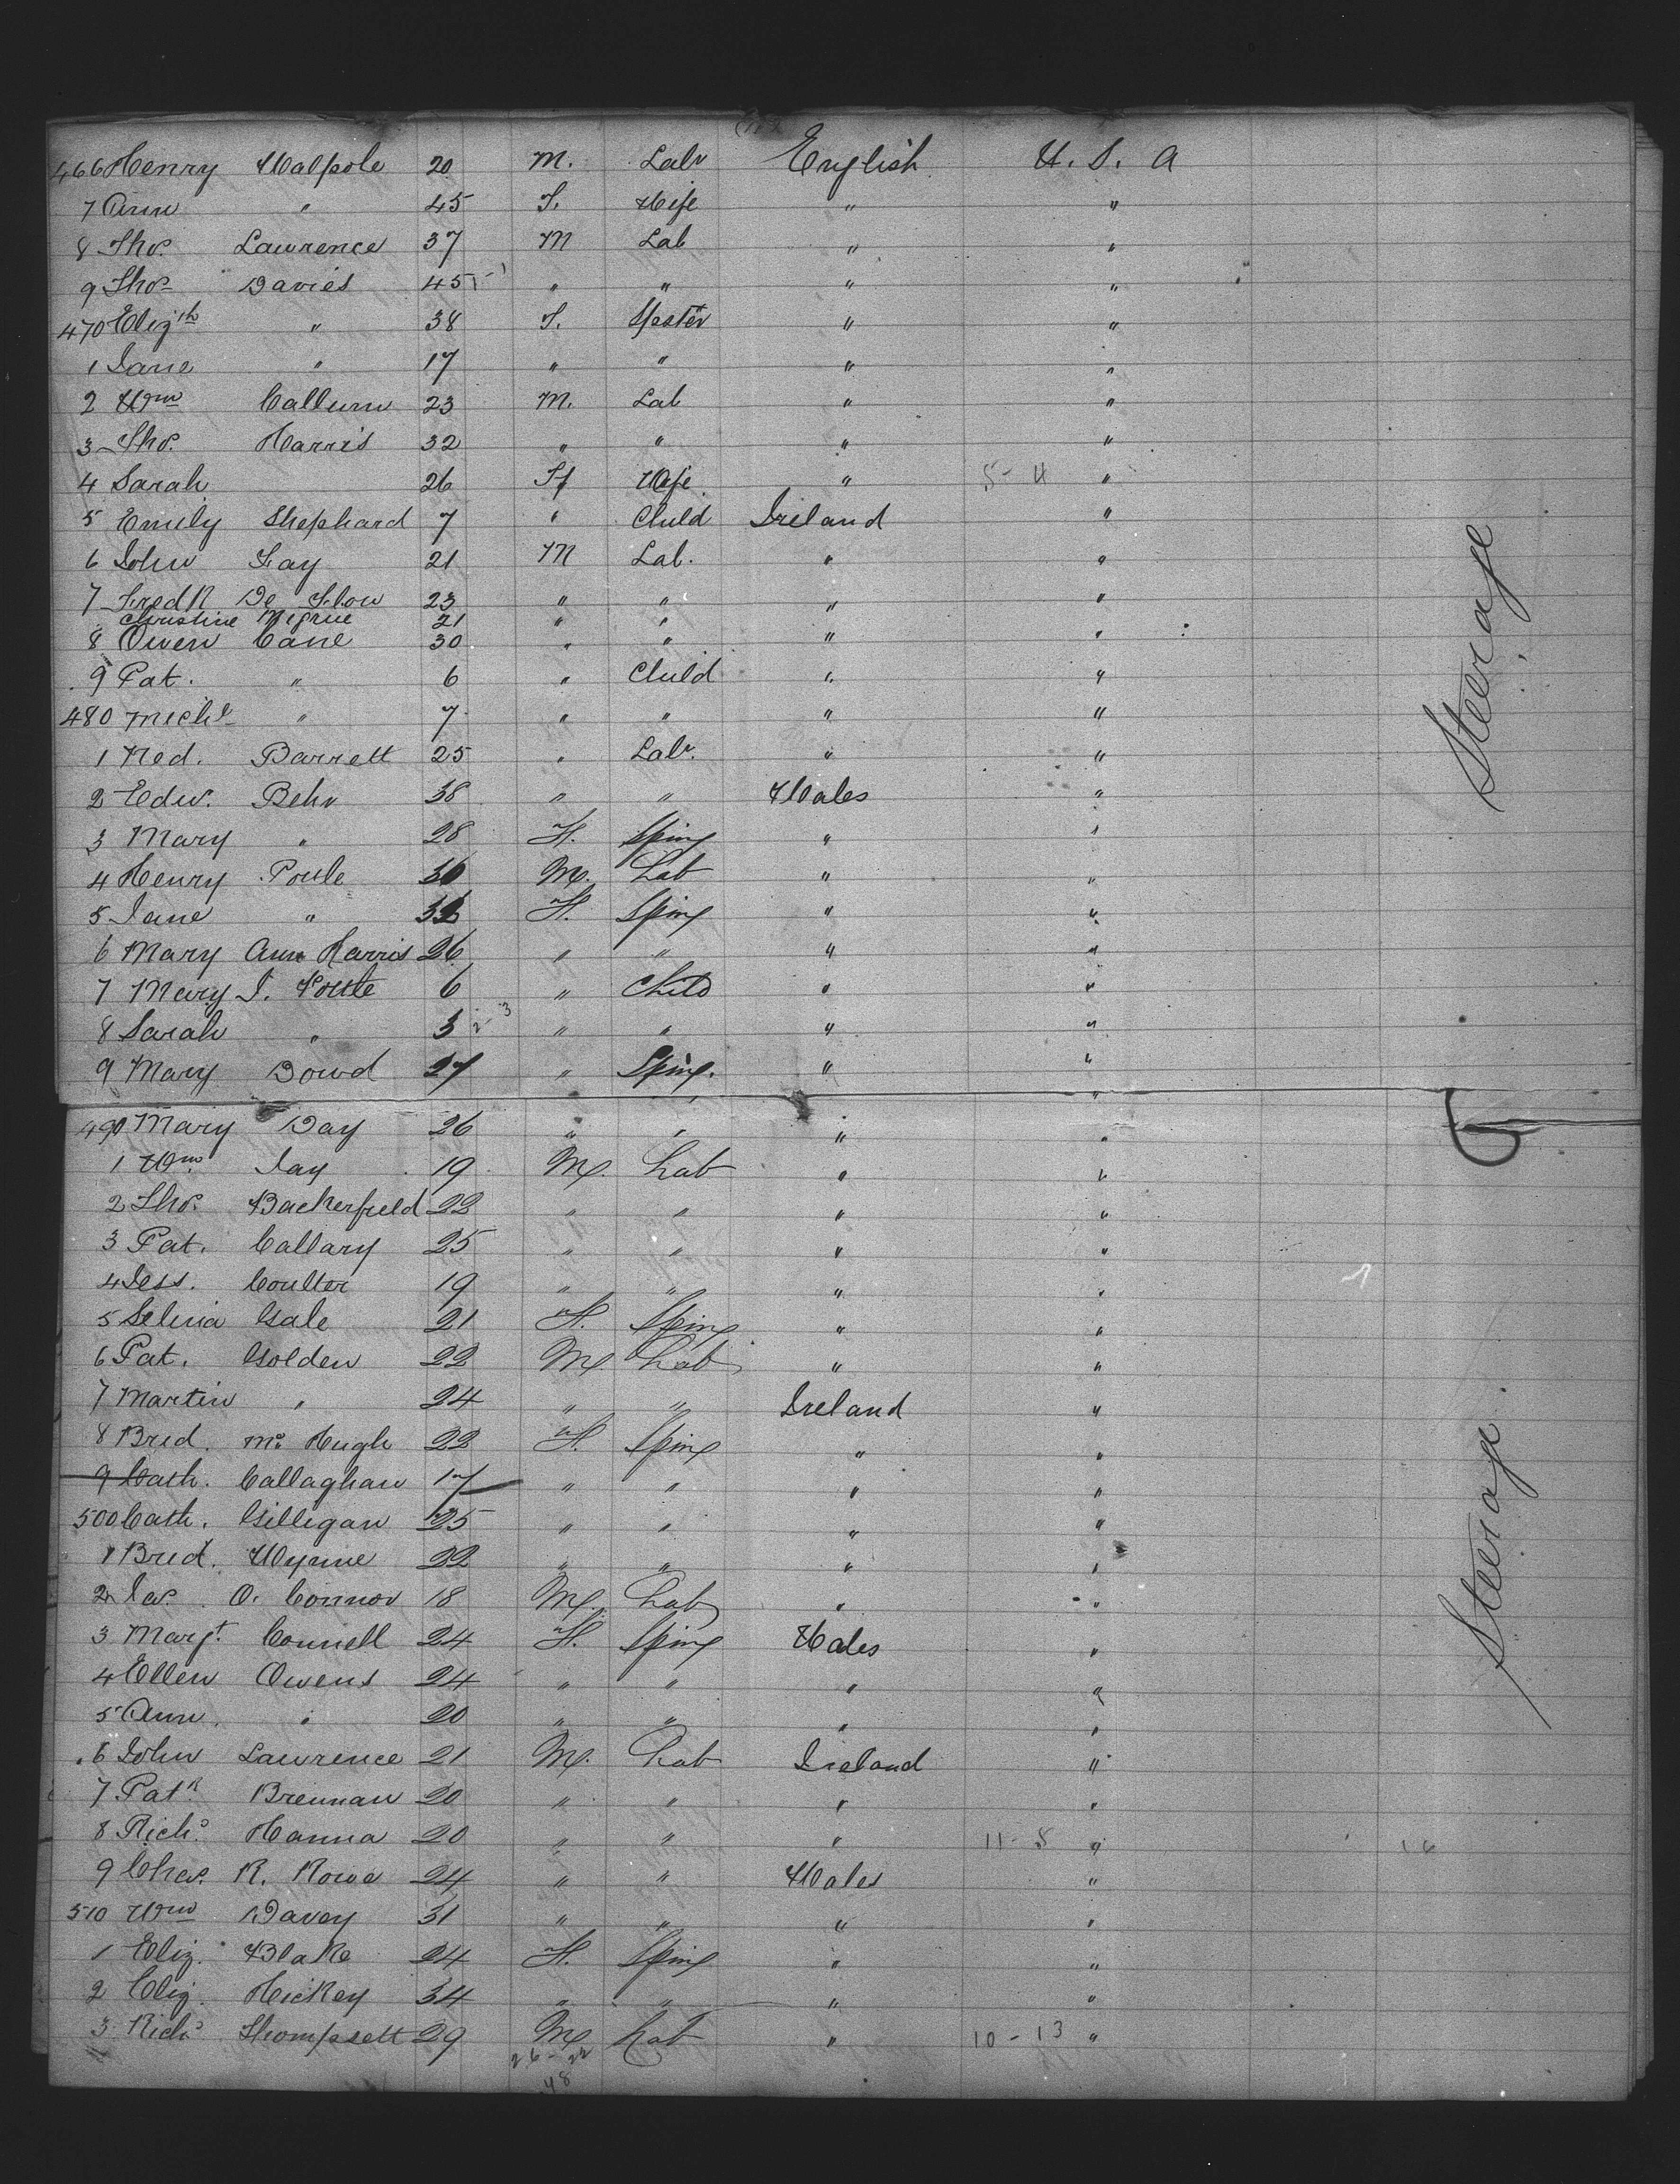 466 Henry Walpole 20 M. Labr English U. S. A
7 Ann " 45 F. Wife " "
8 Thos. Lawrence 37 M Lab " "
9 Thos Davies 45 " " " "
470 Elizth " 38 F. " "
1 Jane " 17 " " " "
2 Wm Callum 23 M. Lab " "
3 Thos. Harris 32 " " " "
4 Sarah 26 F Wife " 5-4 "
5 Emily Shephard 7 " Child Ireland "
6 John Fay 21 M Lab. " "
7 Fredk De Flow 23 " " " "
Christine 21 " "
8 Owen Cane 30 " " " "
9 Pat. " 6 " Child " "
480 Michl " 7 " " " "
1 Ned. Barrett 25 " Labr. " "
2 Edw. Behr 38 " " Wales "
3 Mary " 28 F. Spins " "
4 Henry Poule 30 M. Lab " "
5 Jane " F. Spins " "
6 Mary Ann Harris 26 " " " "
7 Mary J. Poule 6 " Child " "
8 Sarah " 3 2-3 " " " "
9 Mary Dowd 27 " Spins. " "
490 Mary Day 26 " " " "
1 Wm Jay 19 M. Lab " "
2 Thos. Backerfield 22 " " " "
3 Pat. Callary 25 " " " "
4 Jess. Coulter 19 " " " "
5 Selina Gale 21 F. Spins " "
6 Pat. Golden 22 M Lab " "
7 Martin " 24 " " Ireland "
8 Brid. Mc Hugh 22 F. Spins " "
9 Cath. Callaghan 17 " " " "
500 Cath. Gilligan 25 " " " "
1 Brid. Wynne 22 " " " "
2 Jas. O. Connor 18 M. Lab " "
3 Margt. Connell 24 F. Spins Wales "
4 Ellen Owens 24 " " " "
5 Ann. " 20 " " " "
6 John Lawrence 21 M. Lab Ireland "
7 Patk Brennan 20 " " " "
8 Richd Hanna 20 " " " 11-8 " 16
9 Chas. R. Rowe 24 " " Wales "
510 Wm Davey 31 " " " "
1 Eliz. Blake 24 F. Spins " "
2 Eliz. Hickey 34 " " " "
3 Richd Thompsett 29 M Lab " 10-13 "
26-22
48
Steerage
Steerage